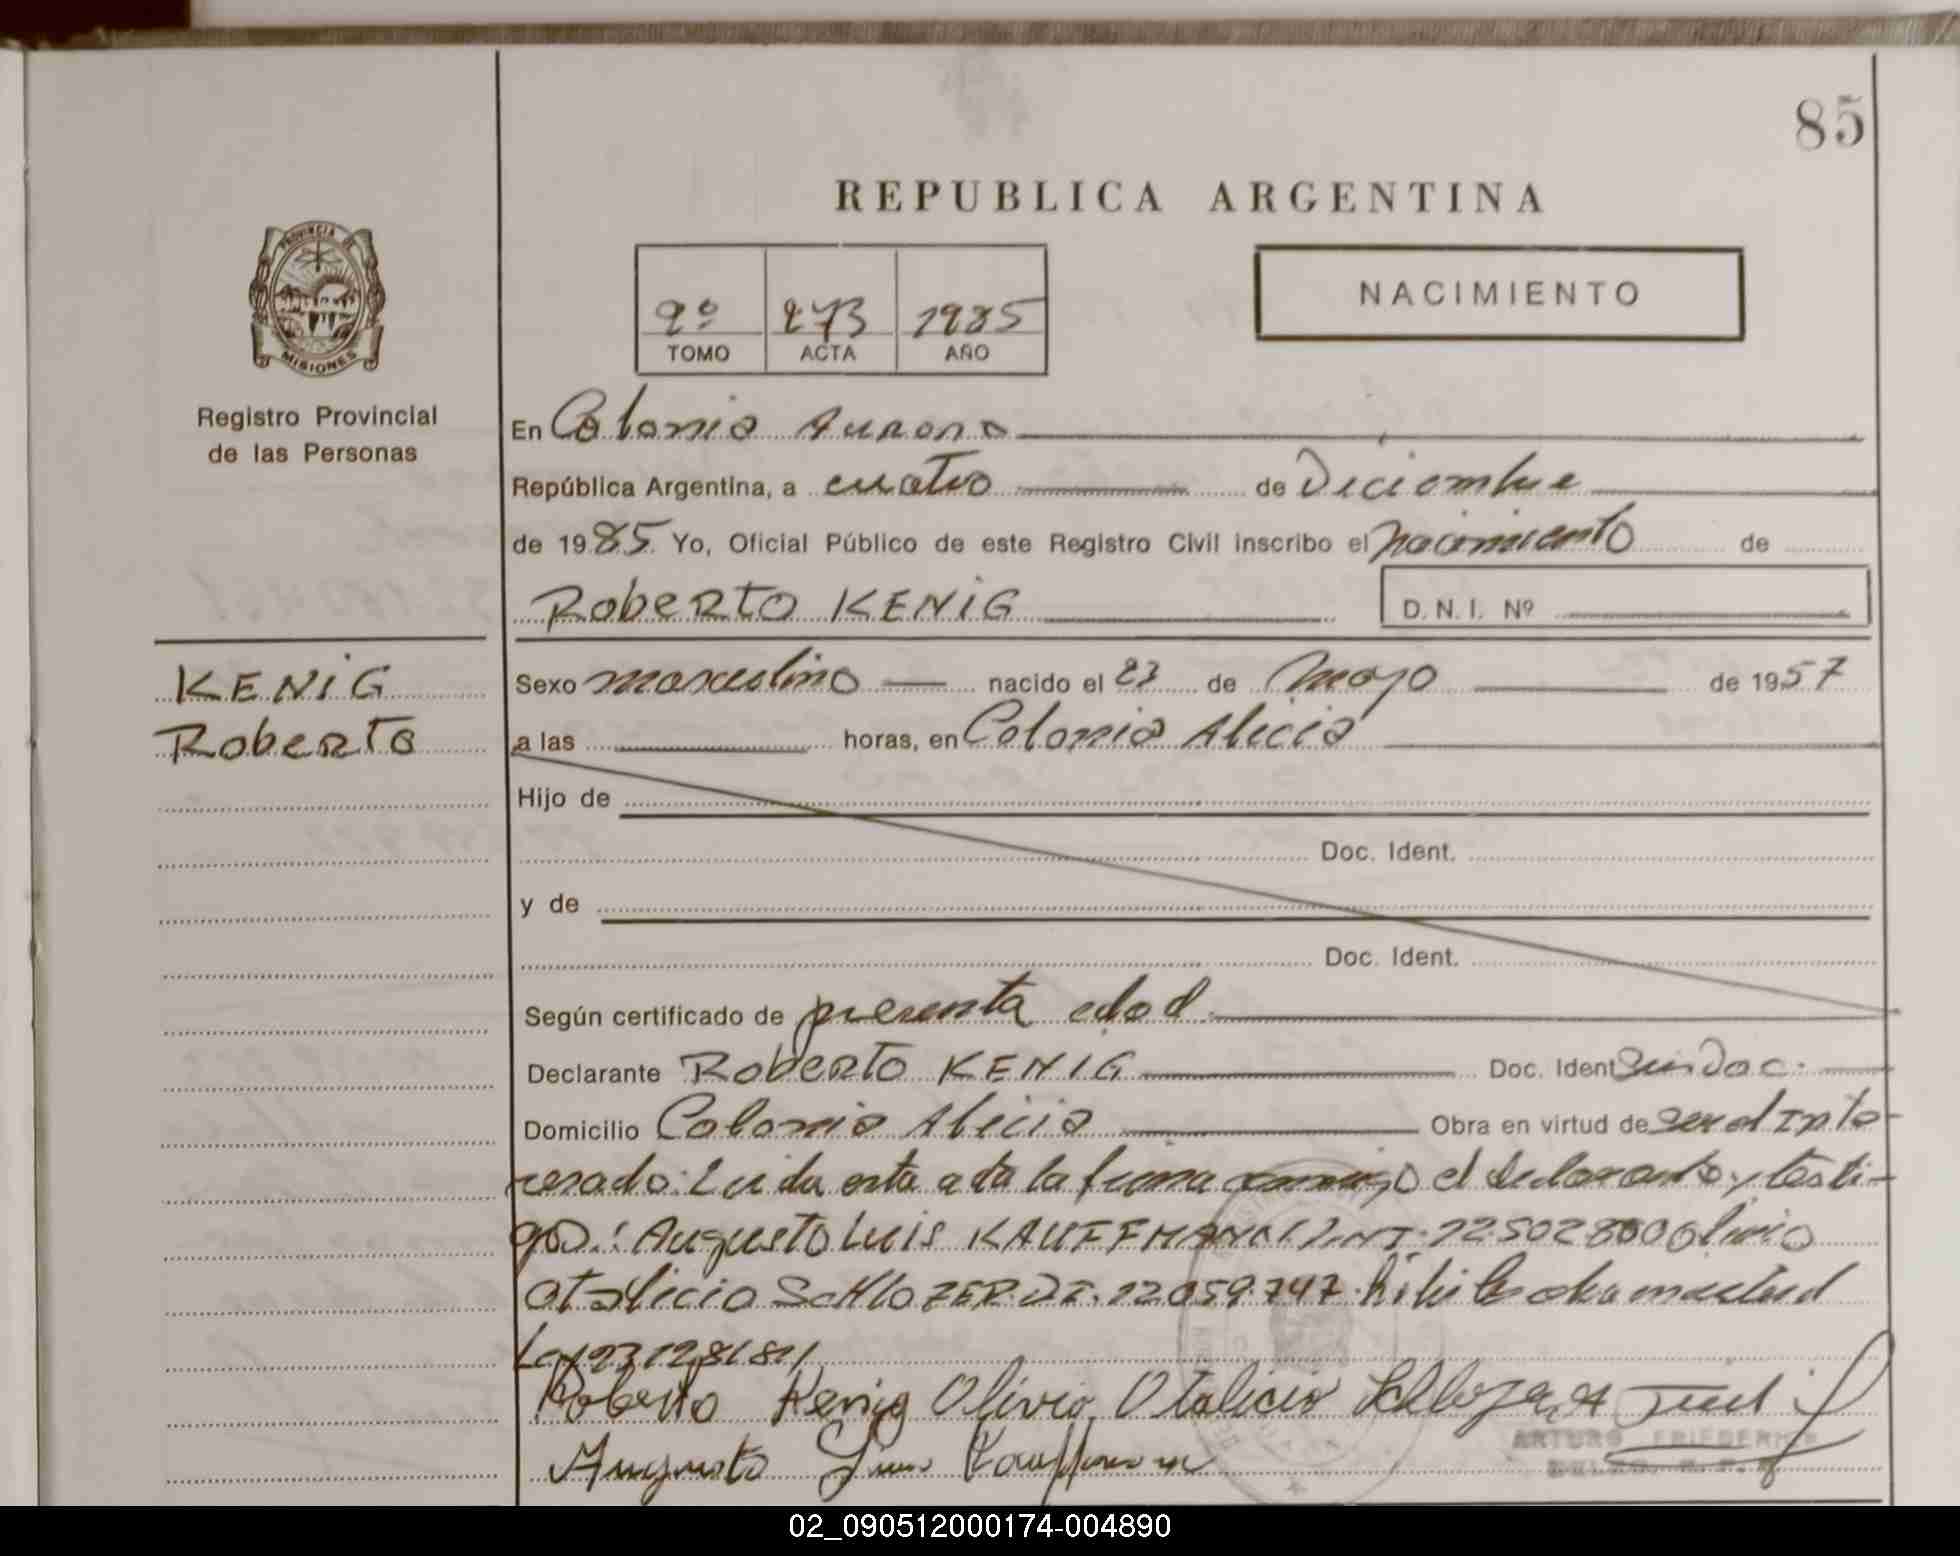 85
REPUBLICA ARGENTINA
PROVINCIA DE
MISIONES
2º 273 1985
TOMO ACTA AÑO
NACIMIENTO
Registro Provincial
de las Personas
En Colonia Aurora
República Argentina, a cuatro de Diciembre
de 1985 Yo, Oficial Público de este Registro Civil inscribo el nacimiento de
Roberto KENIG D.N.I. Nº
KENIG
Roberto
Sexo masculino nacido el 23 de Mayo de 1957
a las horas, en Colonia Alicia
Hijo de
Doc. Ident.
y de
Doc. Ident.
Según certificado de presunta edad
Declarante Roberto KENIG Doc. Ident Sin Doc.
Domicilio Colonia Alicia Obra en virtud de ser el Inte-
resado: Leida esta acta la firma el declarante y testi-
gos: Augusto Luis KAUFFMANN Olivio
Otalicio SCHLOZER D.I. 12.059.747
Ley 23128/84
Roberto Kenig Olivio Otalicio Schlozer
Augusto Luis Kauffmann
ARTURO FRIEDERICH
02_090512000174-004890